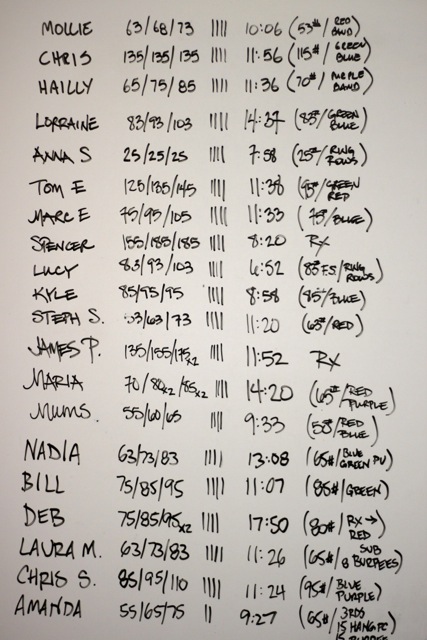 MOLLIE 63/68/73 |||| 10:06 (53#/RED BAND)
CHRIS 135/135/135 |||| 11:56 (115#/GREEN BLUE)
HAILLY 65/75/85 |||| 11:36 (70#/PURPLE BAND)
LORRAINE 83/93/103 |||| 14:37 (83#/GREEN BLUE)
ANNA S 25/25/25 |||| 7:58 (25#/RING ROWS)
TOM E 125/135/145 |||| 11:38 (95#/GREEN RED)
MARC E 75/95/105 |||| 11:33 (75#/BLUE)
SPENCER 155/185/185 |||| 8:20 RX
LUCY 83/93/103 |||| 6:52 (83# F.S/RING ROWS)
KYLE 85/95/95 |||| 8:58 (85#/BLUE)
STEPH S. 53/63/73 |||| 11:20 (63#/RED)
JAMES P. 135/155/175x2 |||| 11:52 RX
MARIA 70/80x2/85x2 |||| 14:20 (65#/RED PURPLE)
MUMS. 55/60/65 |||| 9:33 (55#/RED BLUE)
NADIA 63/73/83 |||| 13:08 (65#/BLUE GREEN PU)
BILL 75/85/95 |||| 11:07 (85#/GREEN)
DEB 75/85/95x2 |||| 17:50 (80#/RX → RED)
LAURA M. 63/73/83 |||| 11:26 (65#/SUB 8 BURPEES)
CHRIS S. 85/95/110 |||| 11:24 (95#/BLUE PURPLE)
AMANDA 55/65/75 || 9:27 (65#/3RDS 15 HANG PC